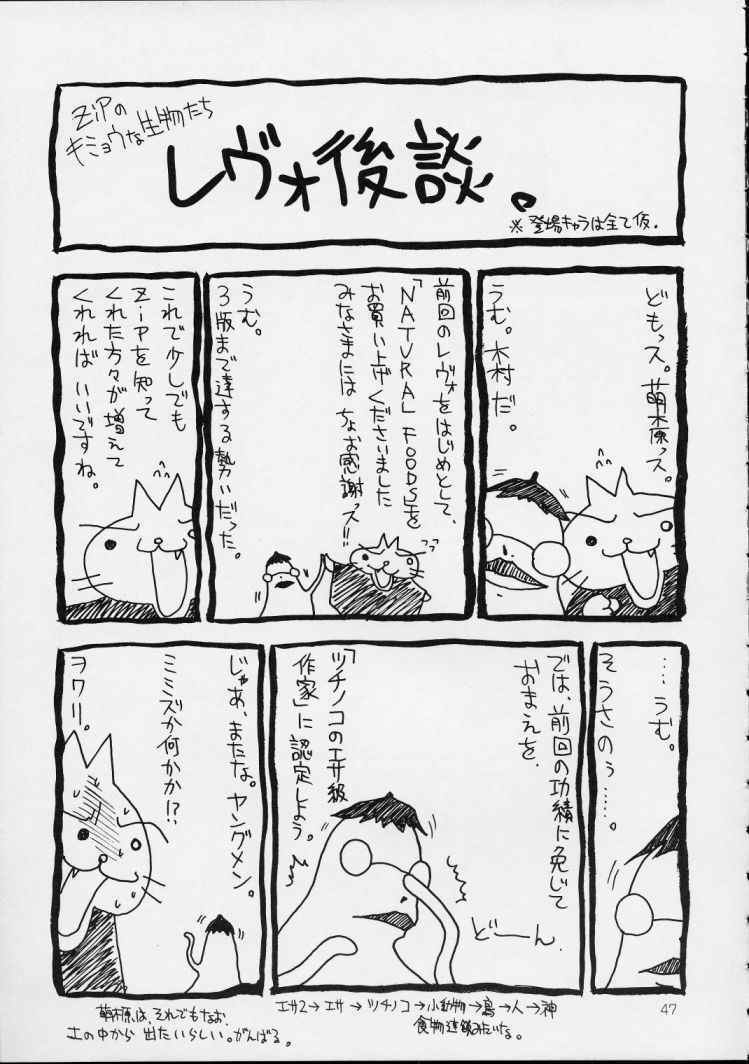 ZiPの
キミョウな生物たち
レヴォ後談。
※登場キャラは全て仮.
どもっス。萌木原っス。
うむ。木村だ。
前回のレヴォをはじめとして、
「NATURAL FOODS」を
お買い上げくださいました
みなさまには ちょお感謝っス!!
うむ。
3版まで達する勢いだった。
これで少しでも
ZiPを知って
くれた方々が増えて
くれれば いいですね。
…うむ。
そうさのぅ……。
では、前回の功績に免じて
おまえを、
「ツチノコのエサ級
作家」に認定しよう。
どーん.
じゃあ、またな。ヤングメン。
ミミズか何かか!?
ヲワリ。
エサ2→エサ→ツチノコ→小動物→鳥→人→神
食物連鎖みたいな。
萌木原は、それでもなお、
土の中から 出たいらしい。がんばる。
47